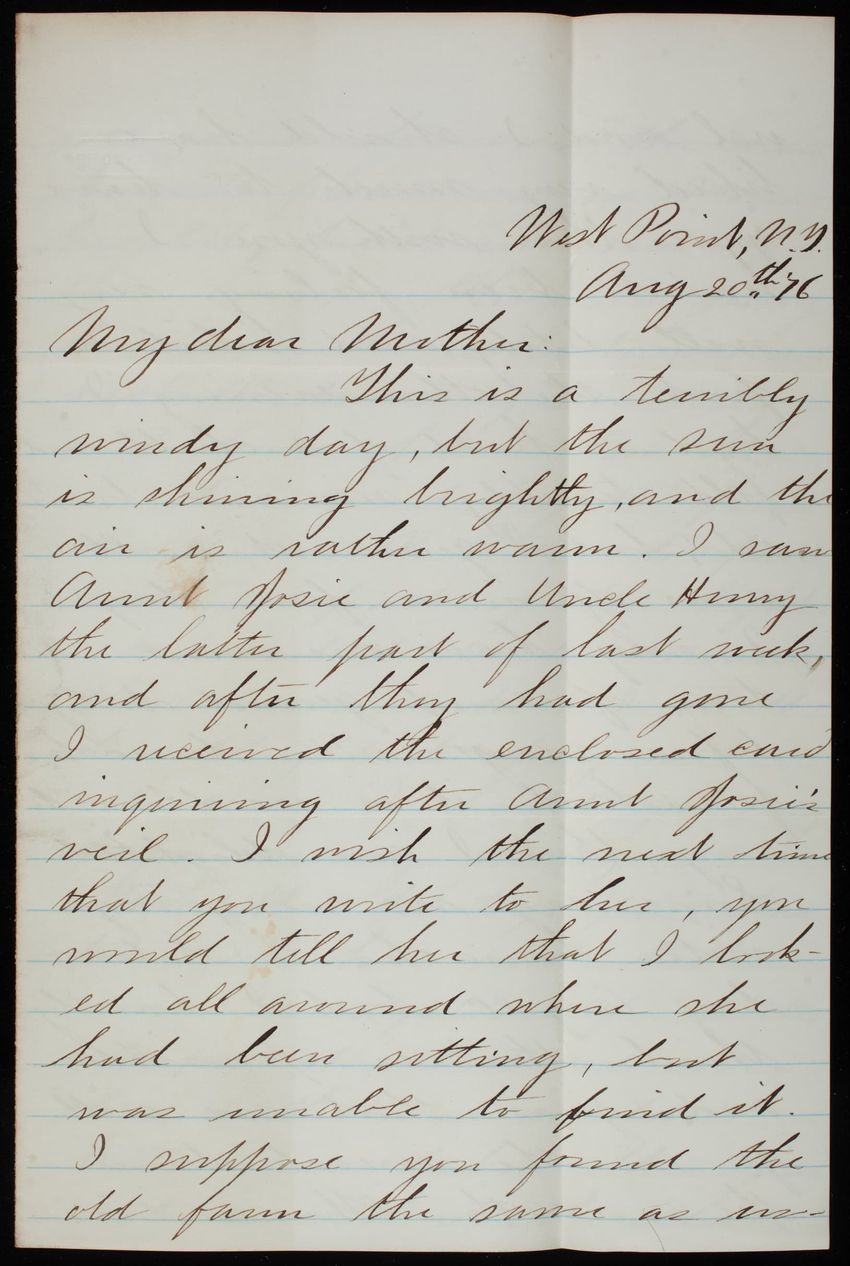 West Point, N.Y.
Aug 20th '76
My dear Mother:
This is a terribly
windy day, but the sun
is shining brightly, and the
air is rather warm. I saw
Aunt Josie and Uncle Henry
the latter part of last week,
and after they had gone
I received the enclosed card
inquiring after Aunt Josie's
veil. I wish the next time
that you write to her, you
would tell her that I look-
ed all around where she
had been sitting, but
was unable to find it.
I suppose you found the
old farm the same as us-